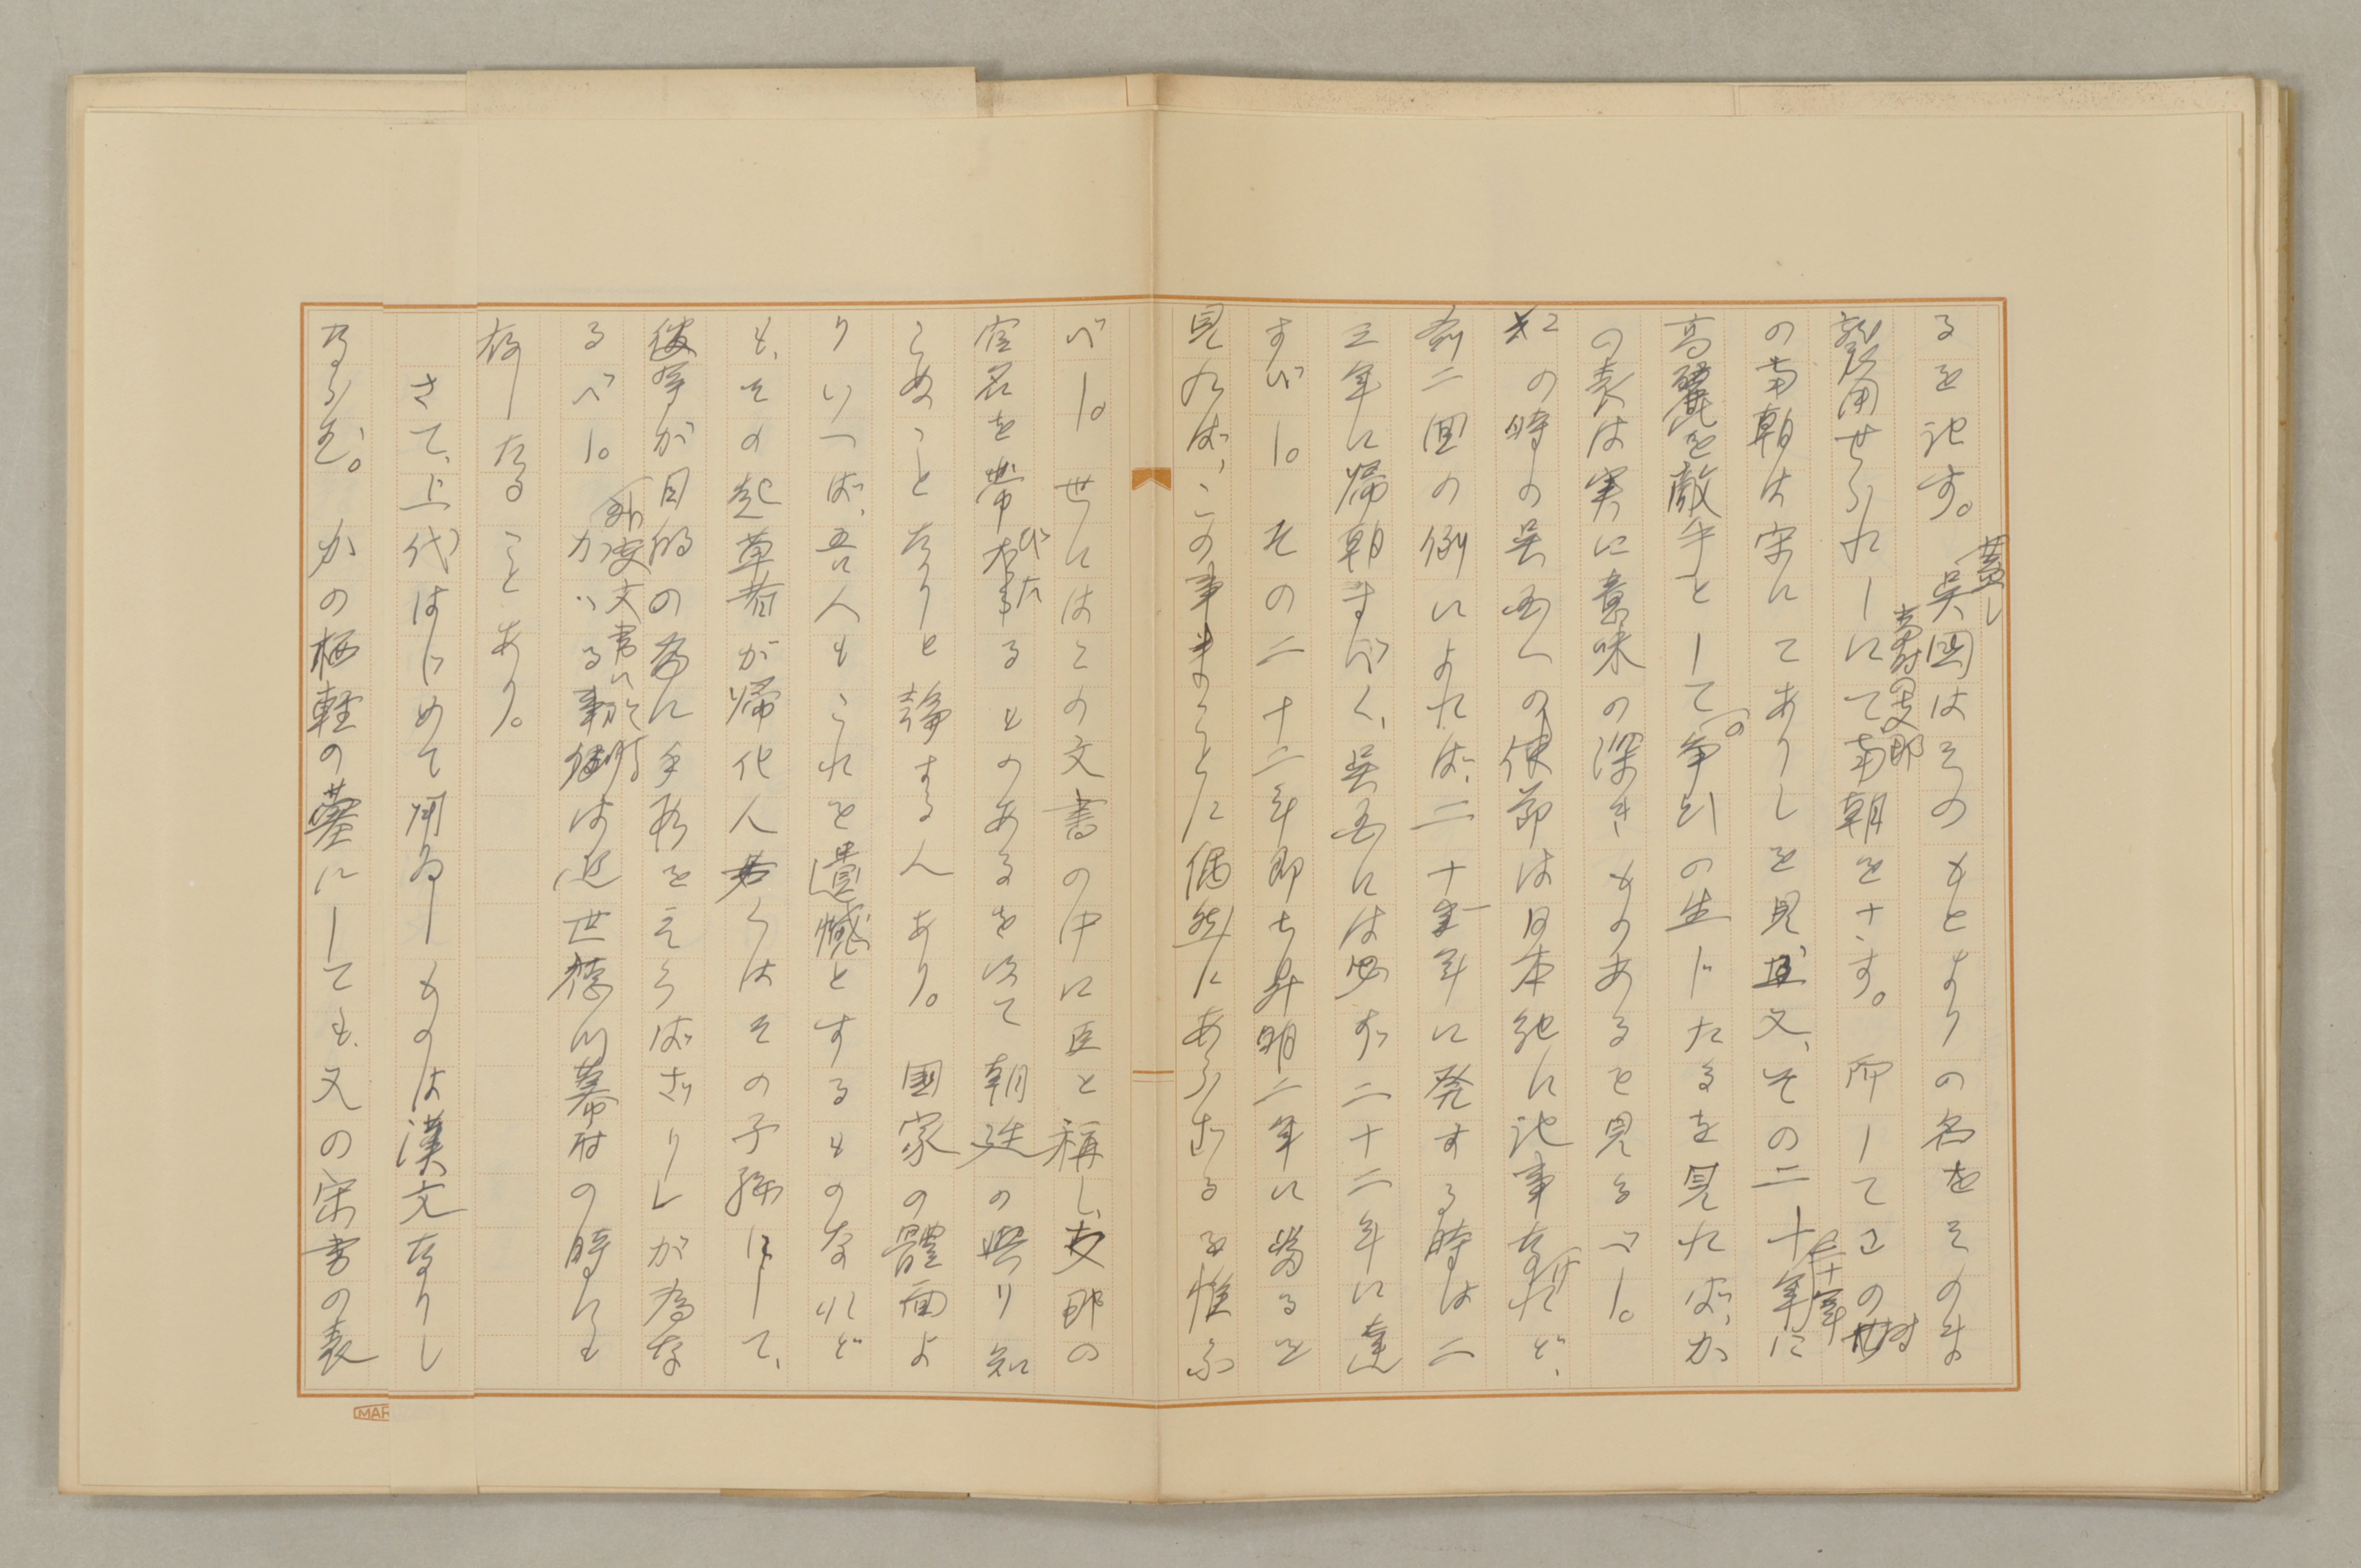 るを記す。蓋し呉国はそのもとよりの名をそのまゝ
襲用せられしにて当時の支那南朝をさす。而してこの時
の南朝は宋にてありしを見又、その二十年に
高麗を敵手として一の争ひの生じたるを見れば、か
の表は実に意味の深きものあるを見るべし。
この時の呉国への使節は日本紀に記事なけれど、
前二回の例によれば、二十一年に発する時は二
三年に帰朝すべく、呉国には必ず二十二年に達
すべし。その二十二年即ち昇明二年に当るを
見れば、この事まことに偶然にあらざるを惟ふ
べし。世にはこの文書の中に臣と称し、支那の
官名を帯びたるものあるを以て朝廷の与り知
らぬことなりと論ずる人あり。国家の體面よ
りいへば、吾人もこれを遺憾とするものなれど
も、その起草者が帰化人若くはその子孫にして、
彼等が目的の為に手段をえらばざりしが為な
るべし。かゝる事例は近世徳川幕府の時にも
外交文書に於て
存したることあり。
さて、上代はじめて用ゐしものは漢文なりし
ならむ。かの栖軽の墓にしても、又の宋書の表
MAR